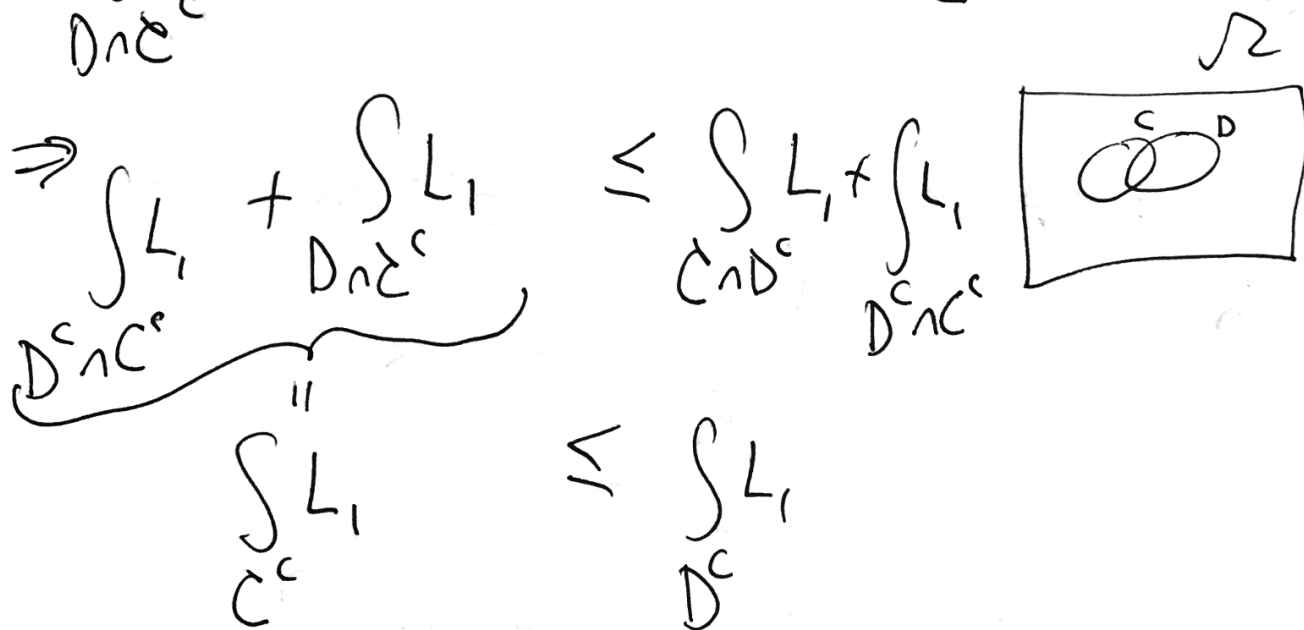 D∩C^c
Ω
⇒ ∫_{D^c∩C^c} L_1 + ∫_{D∩C^c} L_1 ≤ ∫_{C∩D^c} L_1 + ∫_{D^c∩C^c} L_1
C D
=
∫_{C^c} L_1 ≤ ∫_{D^c} L_1